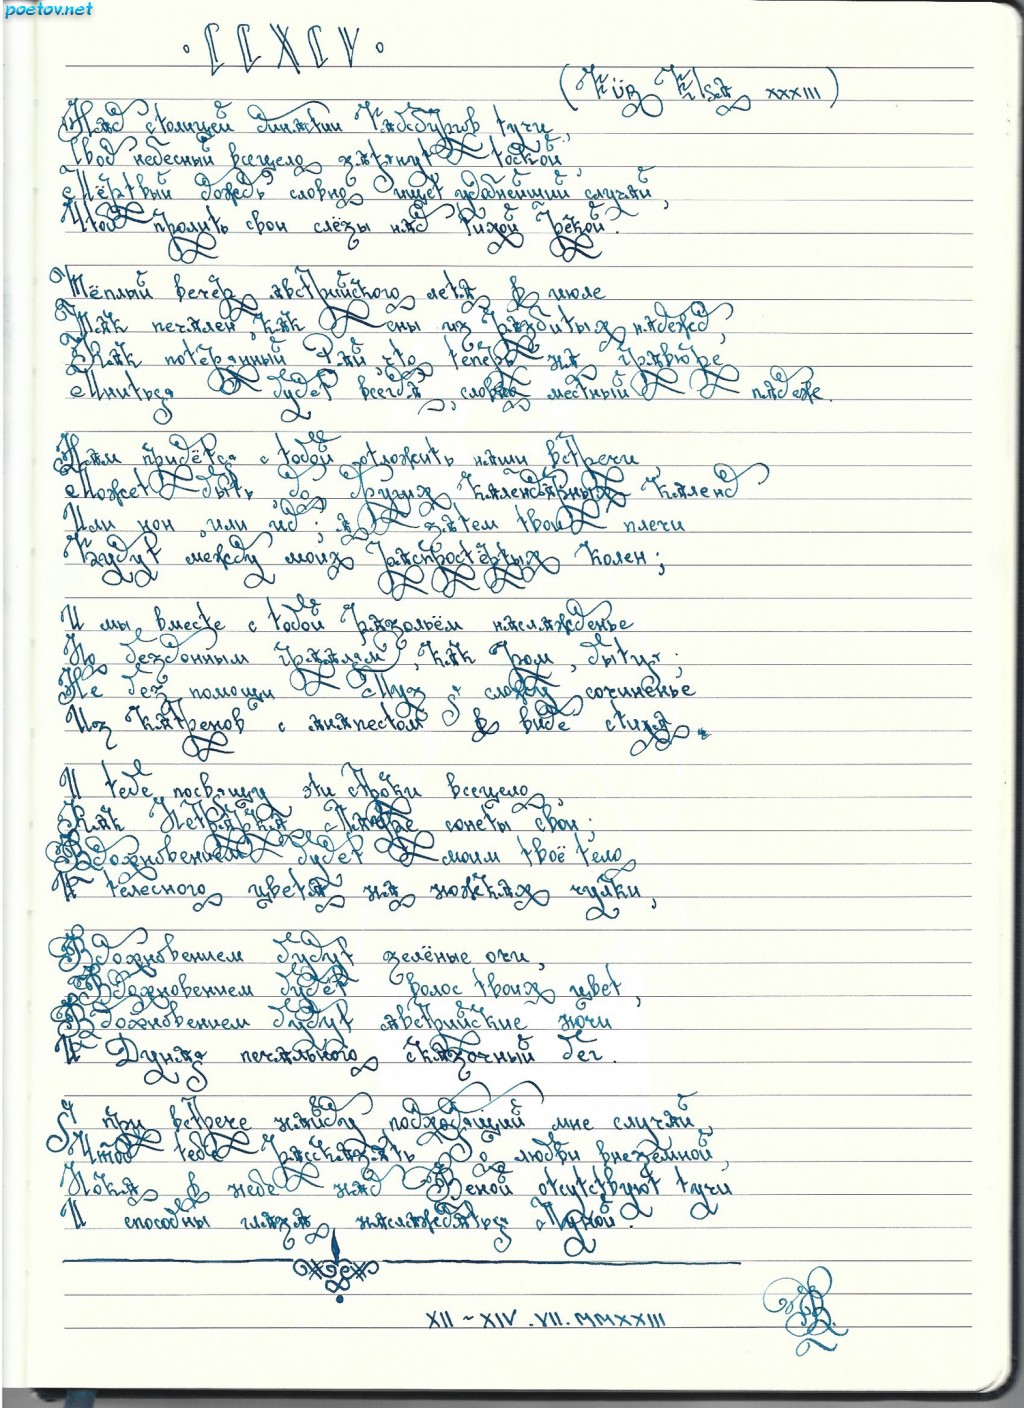 poetov.net
· CCXCV ·
(Für Elsa XXXIII)
Над столицей династии Габсбургов тучи,
Свод небесный всецело затянут тоской,
Мёртвый дождь словно ищет удобнейший случай,
Чтоб пролить свои слёзы над Тихой Рекой.
Тёплый вечер австрийского лета в июле
Так печален, как сны из разбитых надежд,
Как потерянный Рай, что теперь на гравюре
Мниться будет всегда, словно местный падеж.
Нам придётся с тобой отложить наши встречи,
Может быть, до других календарных календ
Или нон, или ид; а затем твои плечи
Будут между моих распростёртых колен;
И мы вместе с тобой разольём наслажденье
По бездонным граалям, как Ром, бытия;
Не без помощи Муз я сложу сочиненье
Из катренов с анапестом в виде стиха.
И тебе посвящу эти строки всецело,
Как Петрарка Лауре сонеты свои;
Вдохновением будет моим твоё тело
И телесного цвета на ножках чулки,
Вдохновением будут зелёные очи,
Вдохновением будет волос твоих цвет,
Вдохновением будут австрийские ночи
И Дуная печального сказочный бег.
Я при встрече найду подходящий мне случай,
Чтоб тебе рассказать о любви внеземной,
Пока в небе над Веной отсутствуют тучи
И способны глаза наслаждаться Луной.
XII ~ XIV . VII . MMXXIII